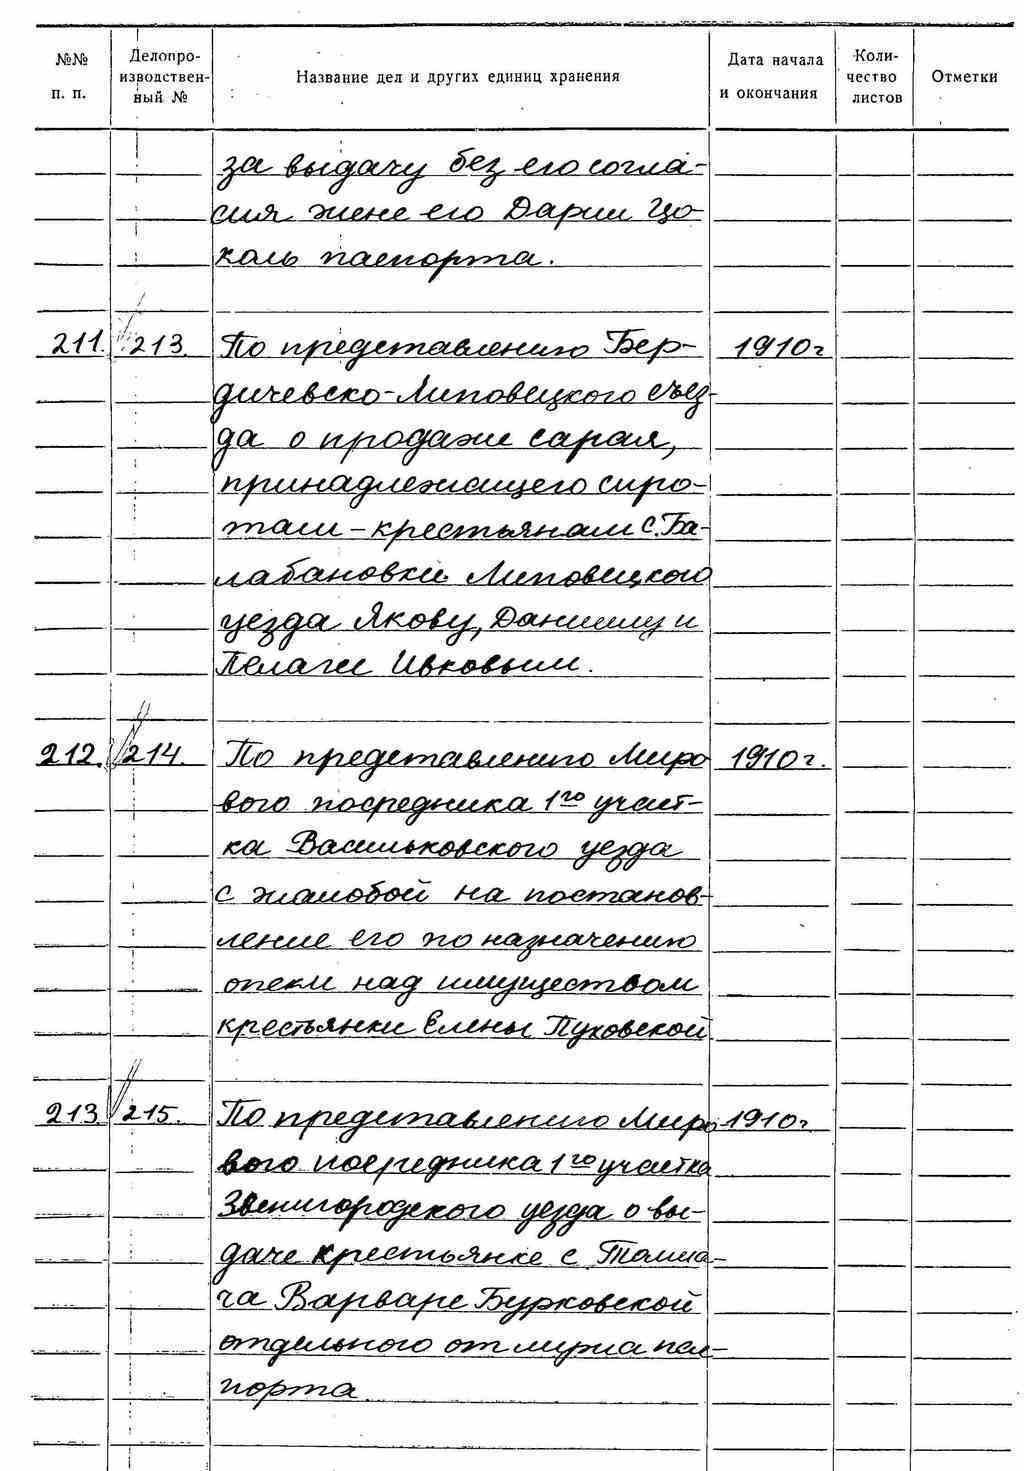 №№ Делопро- Название дел и других единиц хранения Дата начала Коли- Отметки
п. п. изводствен- и окончания чество
ный № листов
за выдачу без его согла-
сия жене его Дарии Цо-
каль паспорта.
211. 213. По представлению Бер- 1910г
дичевско-Липовецкого съез-
да о продаже сарая,
принадлежащего сиро-
там-крестьянам с. Ба-
лабановки Липовецкого
уезда Якову, Даниилу и
Пелагеи Ивковым.
212. 214. По представлению Миро 1910г.
вого посредника 1го участ-
ка Васильковского уезда
с жалобой на постанов-
ление его по назначению
опеки над имуществом
крестьянки Елены Пуховской
213. 215. По представлению Миро 1910г.
вого посредника 1го участка
Звенигородского уезда о вы-
даче крестьянке с. Толма-
ча Варваре Бурковской
отдельного от мужа пас-
порта